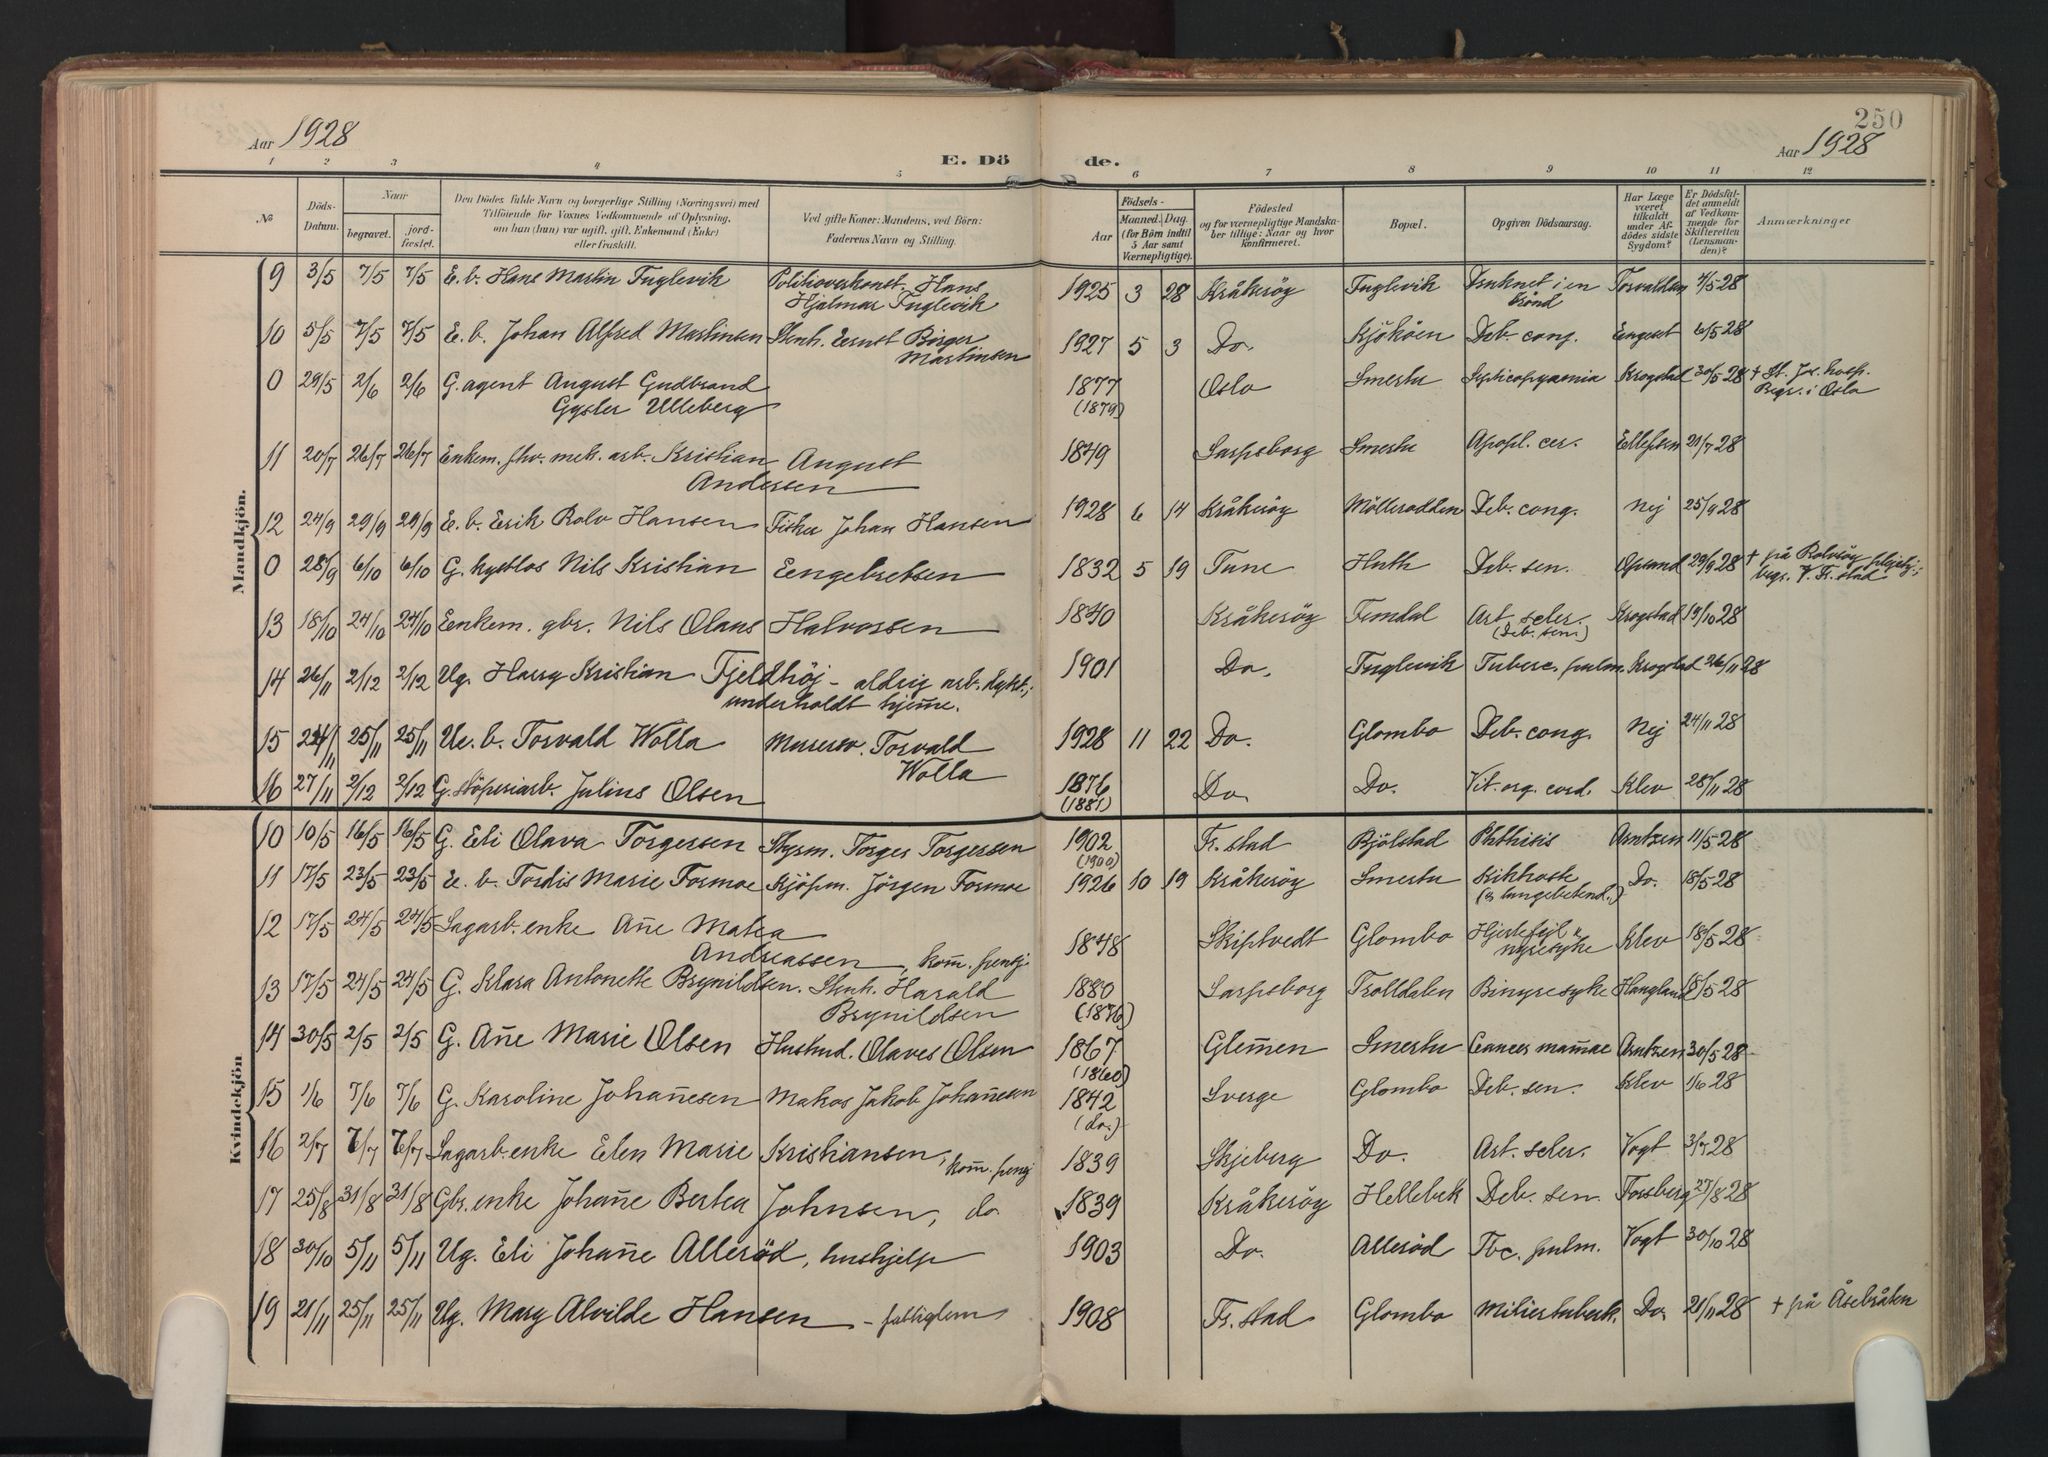 250
Aar 1928
E. Dö
de.
Aar 1928
1 2 3 4 5 6 7 8 9 10 11 12
№
Döds-Datum.
Naar
begravet.
jordfæstet.
Den Dödes fulde Navn og borgerlige Stilling (Næringsvei) med
Tilföiende for Voxnes Vedkommende af Oplysning,
om han (hun) var ugift, gift, Enkemand (Enke)
eller fraskilt.
Ved gifte Koner: Mandens, ved Börn:
Faderens Navn og Stilling.
Födsels-
Aar
Maaned. Dag.
(for Börn indtil
5 Aar samt
Værnepligtige).
Födested
og for værnepligtige Mandska-
ber tillige: Naar og hvor
konfirmeret.
Bopæl.
Opgiven Dödsaarsag.
Har Læge
været
tilkaldt
under Af-
dödes sidste
Sygdom?
Er Dödsfal-
det anmeldt
af Vedkom-
mende for
Skifteretten
(Lensman-
den)?
Anmærkninger
Mandkjön.
9 3/5 7/5 7/5 E. b. Hans Martin Fuglevik Politioverkonst. Hans 1925 3 28 Kråkeröy Fuglevik Druknet i en Torvaldsen 4/5 28
Hjalmar Fuglevik brönd
10 5/5 7/5 7/5 E. b. Johan Alfred Martinsen Stenh. Ernst Birger 1927 5 3 Do. Kjököen Deb. cong. Engeset 6/5 28
Martinsen
0 29/5 2/6 2/6 G. agent August Gudbrand 1877 Oslo Smertu Septicopyæmia Krogstad 30/5 28 + St. Jos. hosp.
Gysler Ulleberg (1879) Begr. i Oslo
11 20/7 26/7 26/7 Enkem. fhv. mek. arb. Kristian August 1849 Sarpsborg Smertu Apopl. cer. Ellefsen 21/7 28
Andersen
12 24/9 29/9 29/9 E. b. Erik Rolv Hansen Fisker Johan Hansen 1928 6 14 Kråkeröy Mölleodden Deb. cong. Nej 25/9 28
0 28/9 6/10 6/10 G. hyttlos Nils Kristian Engebretsen 1832 5 19 Tune Huth Deb. sen. Opsand 29/9 28 + på Rolvsöy plejehj.;
begr. V. Fr.stad
13 18/10 24/10 24/10 Enkem. gbr. Nils Olaus Halvorsen 1840 Kråkeröy Femdal Art. scler. Krogstad 19/10 28
(Deb. sen.)
14 26/11 2/12 2/12 Ug. Harry Kristian Fjeldhöj - aldrig arb. dykt.; 1901 Do. Fuglevik Tuberc. pulm. Krogstad 26/11 28
underholdt hjemme.
15 24/11 25/11 25/11 Ue. b. Torvald Wolla Murersv. Torvald 1928 11 22 Do. Glombo Deb. cong. Nej 24/11 28
Wolla
16 27/11 2/12 2/12 G. Stöperiarb. Julius Olsen 1876 Do. Do. Vit. org. cord. Klev 28/11 28
(1881)
Kvindekjön
10 10/5 16/5 16/5 G. Eli Olava Torgersen Styrm. Torger Torgersen 1902 Fr. stad Bjölstad Phthisis Arntzen 11/5 28
(1900)
11 17/5 23/5 23/5 E. b. Tordis Marie Formoe Kjöpm. Jörgen Formoe 1926 10 19 Kråkeröy Smertu Kikhoste Do. 18/5 28
(& lungebetend.)
12 17/5 24/5 24/5 Sagarb. enke Ane Matea 1848 Skiptvedt Glombo Hjertefejl & Klev 18/5 28
Andreassen, kom. penj. nyresyke
13 17/5 24/5 24/5 G. Klara Antonette Brynildsen. Stenh. Harald 1880 Sarpsborg Trolldalen Binyresyke Haugland 18/5 28
Brynildsen (1876)
14 30/5 2/5 2/5 G. Ane Marie Olsen Hushud. Olaves Olsen 1867 Glemen Smertu Cancer mamae Arntzen 30/5 28
(1860)
15 1/6 7/6 7/6 G. Karoline Johanesen Makos Jakob Johanesen 1842 Sverge Glombo Deb. sen. Klev 1/6 28
(do.)
16 2/7 7/7 7/7 Sagarb. enke Elen Marie Kristiansen, kom. penj 1839 Skjeberg Do. Art. scler. Vogt 3/7 28
17 25/8 31/8 31/8 Gbr. enke Johane Bertea Johnsen, do 1839 Kråkeröy Hellebek Deb. sen. Forsberg 27/8 28
18 30/10 5/11 5/11 Ug. Eli Johane Alleröd, hushjelp 1903 Do. Alleröd Tbc. pulm. Vogt 30/10 28
19 21/11 25/11 25/11 Ug. Mary Alvilde Hansen - fattiglem 1908 Fr. stad Glombo Miliertuberk. Do. 21/11 28 + på Åsebråten